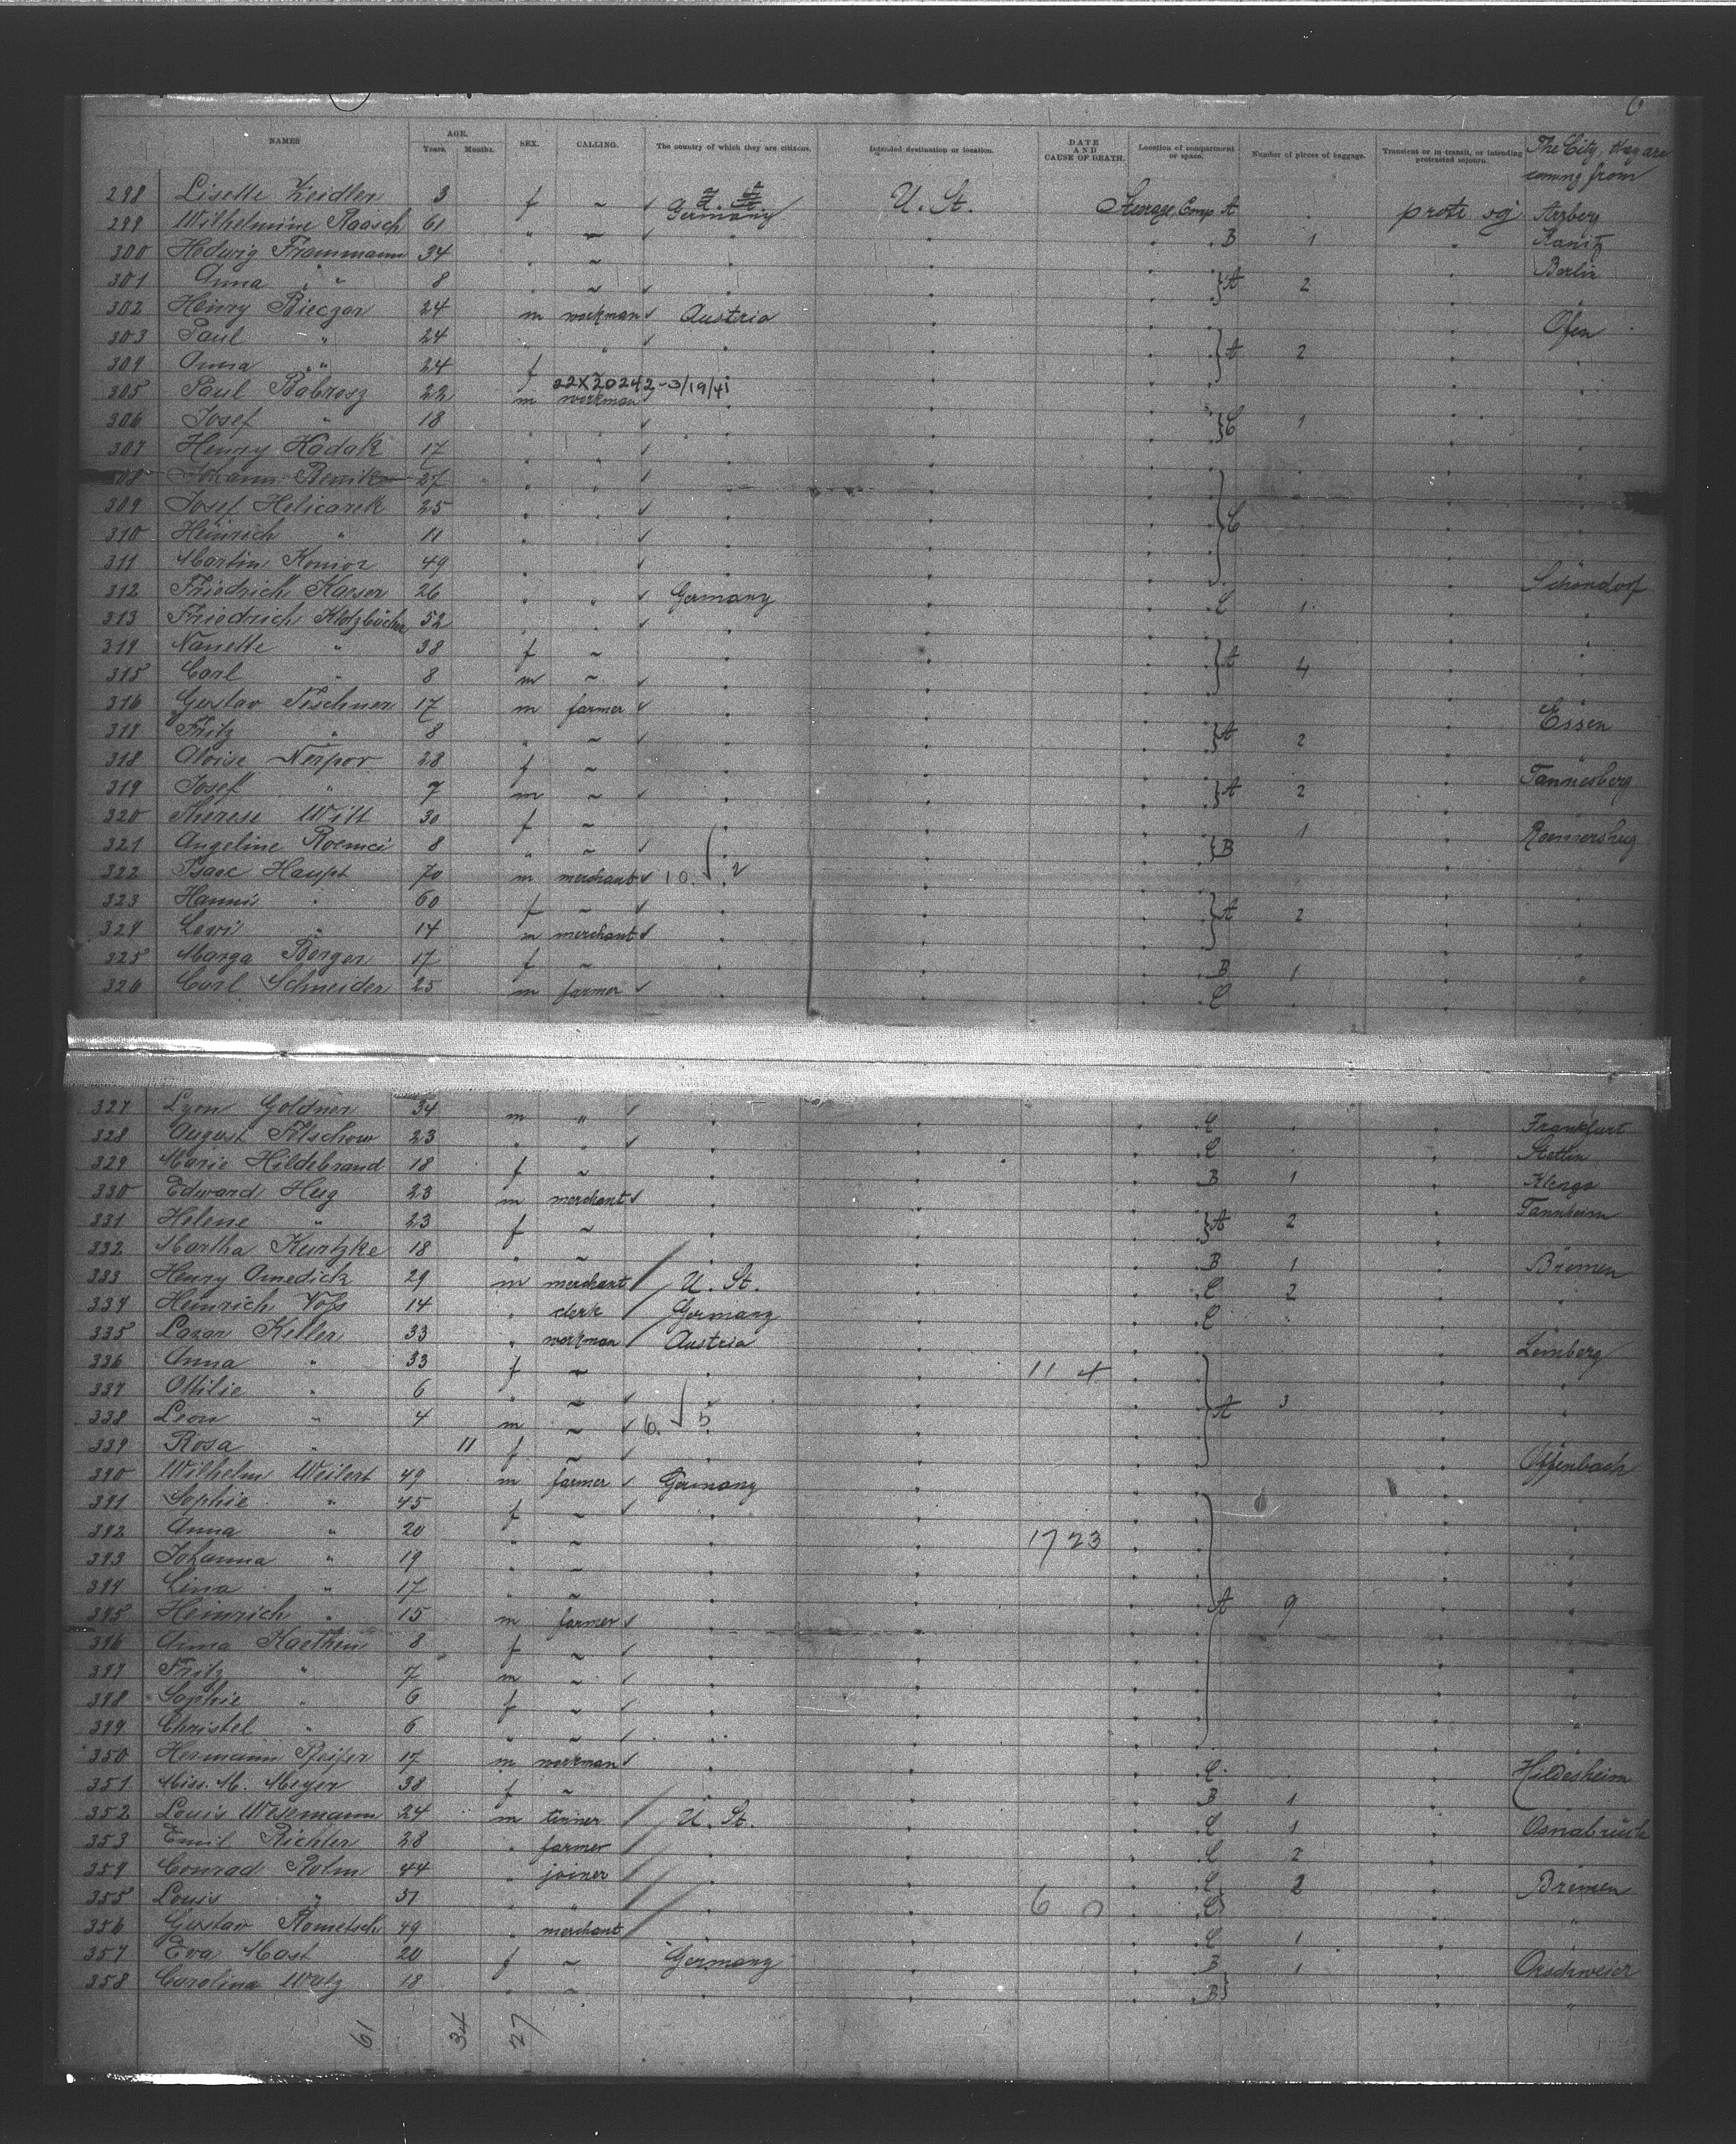 6
NAMES AGE. Years. Months. SEX. CALLING. The country of which they are citizens. Intended destination or location. DATE AND CAUSE OF DEATH. Location of compartment or space. Number of pieces of baggage. Transient or in transit, or intending protracted sojourn. The City, they are coming from
298 Lisette Zeidler 3 f ~ ✓ Germany U. St. Steerage, Comp. A . protr. soj Arzberg
299 Wilhelmine Raasch 61 " ~ ✓ " " " B 1 " Kanitz
300 Hedwig Frammann 34 " ~ " " " " Berlin
301 Anna " 8 " ~ ✓ " " " } A 2 "
302 Henry Bieczor 24 m workman ✓ Austria " " " Ofen
303 Paul " 24 " " ✓ " " " } A 2 " "
304 Anna " 24 f " " " "
22X20242-3/19/41
305 Paul Babrosz 22 m workman " " " "
306 Josef " 18 " " ✓ " " " } C 1 " "
307 Henry Kadak 17 " " ✓ " " " "
308 Johann Benik 27 " " ✓ " " " "
309 Josef Helicarek 25 " " ✓ " " " } C " "
310 Heinrich " 11 " ✓ " " " "
311 Martin Konior 49 " ✓ " " " "
312 Friedrich Kaeser 26 " " ✓ Germany " " C 1 " Schöndorf
313 Friedrich Klotzbücher 52 " " ✓ " " " " "
314 Nanette " 38 f ~ " " " } A 4 " "
315 Carl " 8 m ~ ✓ " " " " "
316 Gustav Tischner 17 m farmer ✓ " " " " Essen
317 Fritz " 8 " ~ ✓ " " " } A 2 " "
318 Aloise Nerpor 28 f ~ " " " " Tannesberg
319 Josef " 7 m ~ ✓ " " " } A 2 " "
320 Therese Witt 30 f ~ " " " 1 "
321 Angeline Roemei 8 " ~ ✓ " " " } B "
322 Isaac Haupt 70 m merchant ✓ 10. 2 " " " "
323 Hannis " 60 f ~ ✓ " " " } A 2 " "
324 Levi " 14 m merchant ✓ " " " " "
325 Marga Borger 17 f ~ " " " B 1 " "
326 Carl Schneider 25 m farmer ✓ " " " C " "
327 Lyon Goldner 34 m " ✓ " " " C " Frankfurt
328 August Filschow 23 " " ✓ " " " C " Stettin
329 Marie Hildebrand 18 f ~ " " " B 1 "
330 Edward Heig 23 m merchant ✓ " " " " Tannheim
331 Helene " 23 f ~ " " " } A 2 "
332 Martha Kurtzke 18 " ~ " " " B 1 " Bremen
333 Henry Amedick 29 m merchant / U. St. " " C 2 " "
334 Heinrich Voss 14 " clerk / Germany " " C " "
335 Lazar Keller 33 " workman Austria " " " Lemberg
336 Anna " 33 f ~ " " 11 4 " " "
337 Ottilie " 6 " ~ ✓ " " " } A 3 " "
338 Leon " 4 m ~ ✓ 6. 5 " " "
339 Rosa " 11 f ~ ✓ " " " "
340 Wilhelm Weilert 49 m farmer ✓ Germany " " " Offenbach
341 Sophie " 45 f ~ ✓ " " " " "
342 Anna " 20 " ~ " " 17 23 " " "
343 Johanna " 19 " ~ " " " " "
344 Lina " 17 " ~ " " " " "
345 Heinrich " 15 m farmer ✓ " " " } A 9 " "
346 Anna Kaethen 8 f ~ ✓ " " " "
347 Fritz " 7 m ~ ✓ " " " " "
348 Sophie " 6 f ~ ✓ " " " " "
349 Christel " 6 " ~ ✓ " " " " "
350 Hermann Pfeifer 17 m workman ✓ " " " C " Hildesheim
351 Miss. M. Meyer 38 f ~ " " " B 1 "
352 Louis Wesemann 24 m tinner / U. St. " " C 1 " Osnabrück
353 Emil Richter 28 " farmer " " " C 2 "
354 Conrad Rohn 44 " joiner " " " C 2 " Bremen
355 Louis " 51 " " " " 6 0 " C} " "
356 Gustav Rometsch 49 " merchant / " " " C 1 " "
357 Eva Mast 20 f ~ Germany " " B 1 " Orschweier
358 Carolina Watz 18 " ~ " " " B} " "
61 34 27